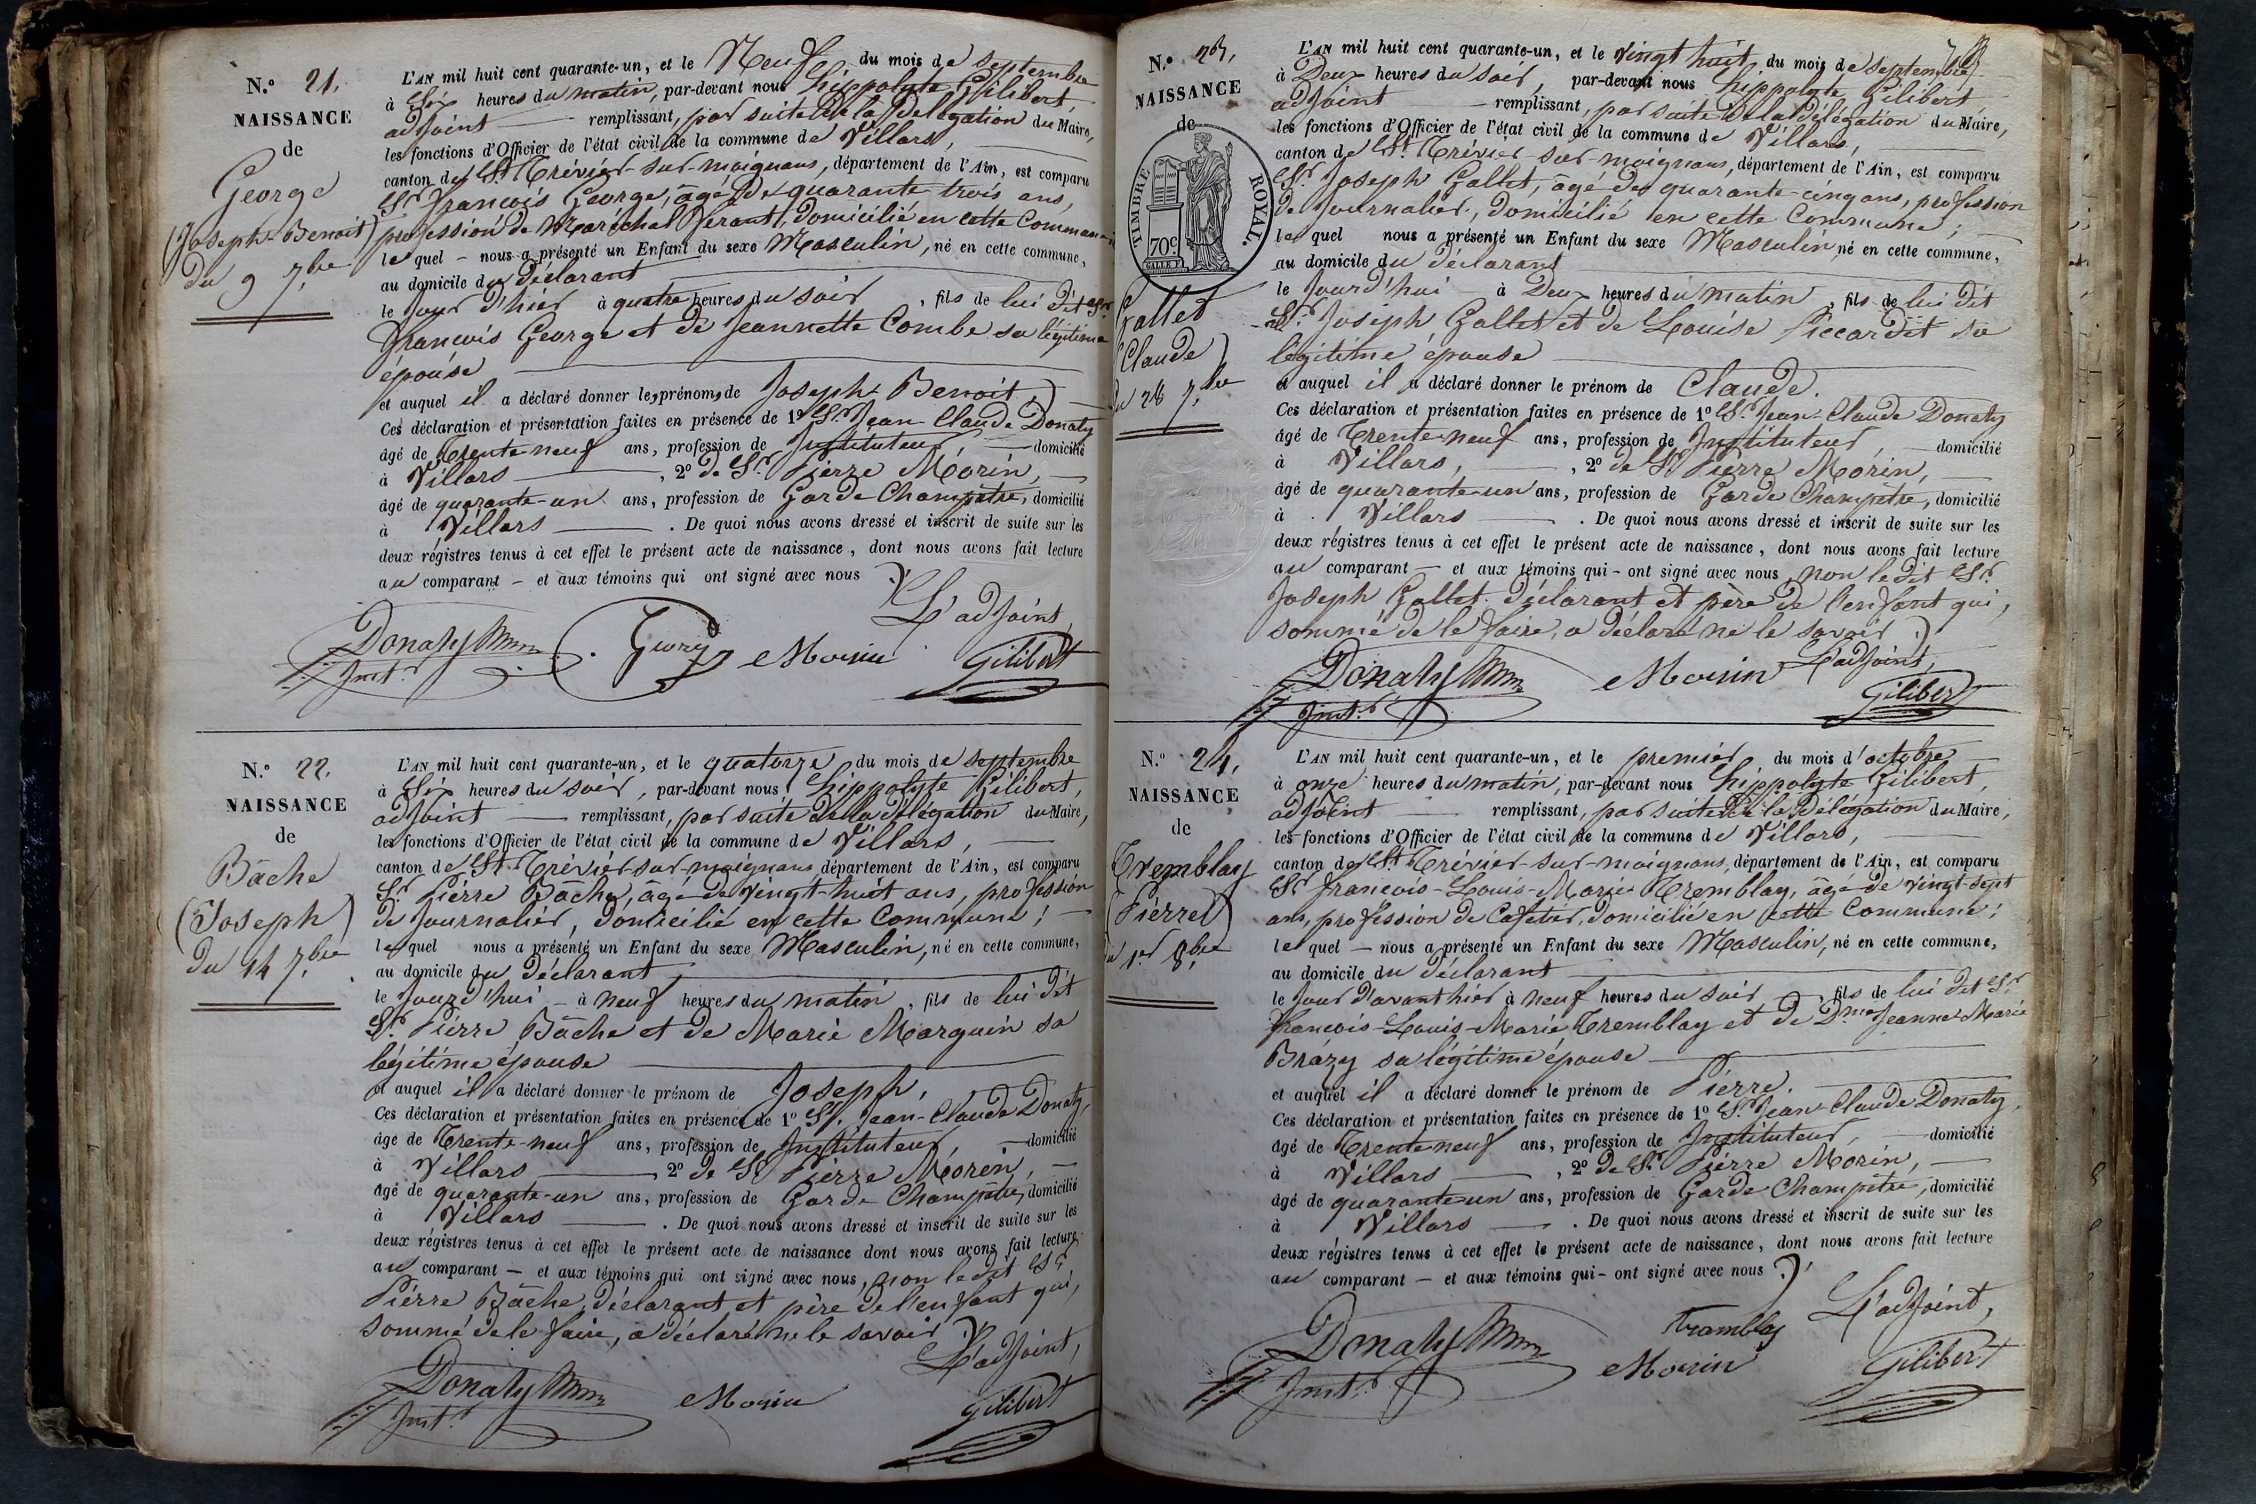 N.º 21.
NAISSANCE
de
George
(Joseph-Benoit)
du 9 7.bre
L'AN mil huit cent quarante-un, et le Neuf du mois de septembre
à Six heures du matin, par-devant nous hippolyte Gilibert,
adjoint remplissant, par suite de la Délégation du Maire,
les fonctions d'Officier de l'état civil de la commune de Villars,
canton de St. Trévier-sur-moignans, département de l'Ain, est comparu
Sr. françois George, âgé de quarante trois ans,
profession de Maréchal ferant, domicilié en cette Commune;
lequel – nous a présenté un Enfant du sexe Masculin, né en cette commune,
au domicile du Déclarant
le jour d'hier à quatre heures du soir, fils de lui dit Sr.
françois George et de Jeannette Combe sa légitime
épouse
et auquel il a déclaré donner les prénoms de Joseph Benoit.)
Ces déclaration et présentation faites en présence de 1º Sr. Jean Claude Donaty
âgé de Trente-neuf ans, profession de Instituteur domicilié
à Villars, 2º de Sr. Pierre Morin,
âgé de quarante-un ans, profession de Garde Champêtre, domicilié
à Villars. De quoi nous avons dressé et inscrit de suite sur les
deux régistres tenus à cet effet le présent acte de naissance, dont nous avons fait lecture
au comparant – et aux témoins qui ont signé avec nous
L'adjoint,
Donaty
Inst.r
George
Morin
Gilibert
N.º 22.
NAISSANCE
de
Bâche
(Joseph)
du 14 7.bre
L'AN mil huit cent quarante-un, et le quatorze du mois de septembre
à Six heures du soir, par-devant nous hippolyte Gilibert,
adjoint remplissant, par suite de la délégation du Maire,
les fonctions d'Officier de l'état civil de la commune de Villars,
canton de St. Trévier-sur-moignans département de l'Ain, est comparu
Sr. Pierre Bâche, âgé de vingt-huit ans, profession
de Journalier, domicilié en cette Commune;
lequel nous a présenté un Enfant du sexe Masculin, né en cette commune,
au domicile du déclarant
le Jourd'hui – à neuf heures du matin, fils de lui dit
Sr. Pierre Bâche et de Marie Marguin sa
légitime épouse
et auquel il a déclaré donner le prénom de Joseph,
Ces déclaration et présentation faites en présence de 1º Sr. Jean-Claude Donaty,
âgé de Trente-neuf ans, profession de Instituteur, domicilié
à Villars 2º de Sr Pierre Morin,
âgé de quarante-un ans, profession de Garde Champêtre, domicilié
à Villars. De quoi nous avons dressé et inscrit de suite sur les
deux régistres tenus à cet effet le présent acte de naissance dont nous avons fait lecture
au comparant – et aux témoins qui ont signé avec nous, non le dit Sr.
Pierre Bâche, déclarant et père de l'enfant qui,
sommé de le faire, a déclaré ne le savoir
L'adjoint,
Donaty
Inst.r
Morin
Gilibert
N.º 23.
NAISSANCE
de
TIMBRE ROYAL.
70 c.
Gallet
(Claude)
du 28 7.bre
L'AN mil huit cent quarante-un, et le vingt huit du mois de septembre
à Deux heures du soir, par-devant nous hippolyte Gilibert
adjoint remplissant, par suite de la délégation du Maire,
les fonctions d'Officier de l'état civil de la commune de Villars,
canton de St. Trévier-sur-moignans, département de l'Ain, est comparu
Sr. Joseph Gallet, âgé de quarante-cinq ans, profession
de Journalier, domicilié en cette Commune;
lequel nous a présenté un Enfant du sexe Masculin né en cette commune,
au domicile du déclarant
le Jourd'hui à Deux heures du matin, fils de lui dit
Sr. Joseph Gallet et de Louise Piccardit sa
légitime épouse
et auquel il a déclaré donner le prénom de Claude.
Ces déclaration et présentation faites en présence de 1º Sr. Jean-Claude Donaty
âgé de Trente-neuf ans, profession de Instituteur, domicilié
à Villars, 2º de Sr. Pierre Morin,
âgé de quarante-un ans, profession de Garde Champêtre, domicilié
à Villars. De quoi nous avons dressé et inscrit de suite sur les
deux régistres tenus à cet effet le présent acte de naissance, dont nous avons fait lecture
au comparant – et aux témoins qui – ont signé avec nous, non le dit Sr.
Joseph Gallet déclarant et père de l'enfant qui,
sommé de le faire, a déclaré ne le savoir.)
L'adjoint,
Donaty
Inst.r
Morin
Gilibert
N.º 24.
NAISSANCE
de
Tremblay
(Pierre)
du 1er 8.bre
L'AN mil huit cent quarante-un, et le premier du mois d'octobre
à onze heures du matin, par-devant nous hippolyte Gilibert,
adjoint remplissant, par suite de la Délégation du Maire,
les fonctions d'Officier de l'état civil de la commune de Villars,
canton de St. Trévier-sur-moignans, département de l'Ain, est comparu
Sr. françois-Louis-Marie Tremblay, âgé de vingt-sept
ans, profession de Cafetier, domicilié en cette Commune;
lequel – nous a présenté un Enfant du sexe Masculin, né en cette commune,
au domicile du déclarant
le Jour d'avant hier à neuf heures du soir, fils de lui dit Sr.
françois-Louis-Marie Tremblay et de Dme. Jeanne-Marie
Brázy sa légitime épouse
et auquel il a déclaré donner le prénom de Pierre.
Ces déclaration et présentation faites en présence de 1º Sr. Jean-Claude Donaty,
âgé de Trente neuf ans, profession de Instituteur, domicilié
à Villars, 2º de Sr. Pierre Morin,
âgé de quarante-un ans, profession de Garde Champêtre, domicilié
à Villars. De quoi nous avons dressé et inscrit de suite sur les
deux régistres tenus à cet effet le présent acte de naissance, dont nous avons fait lecture
au comparant – et aux témoins qui – ont signé avec nous.)
L'adjoint,
Donaty
Inst.r
trambly
Morin
Gilibert